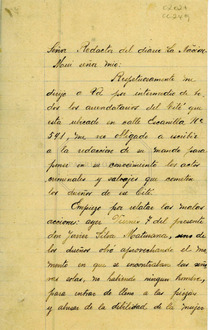 02021
Señor Redactor del diario La Nación
Muy señor mio:
Respetuosamente me
dirijo a Vd por intermedio de to
dos los arrendatarios del Cité que
esta ubicado en calle Escanilla Nº
591, me veo obligado a escribir
a la redaccion de su mando para
poner en su conocimiento los actos
criminales y salvajes que cometen
los dueños de ese Cité.
Empiezo por relatar las malas
acciones: ayer Viernes 7 del presente
don Javier Silva Maturana, uno de
los dueños de, aprovechando el mo
mento en que se encontraban las seño
ras solas, no habiendo ningun hombre,
para entrar de lleno a las piezas
y abusar de la debilidad de la mujer